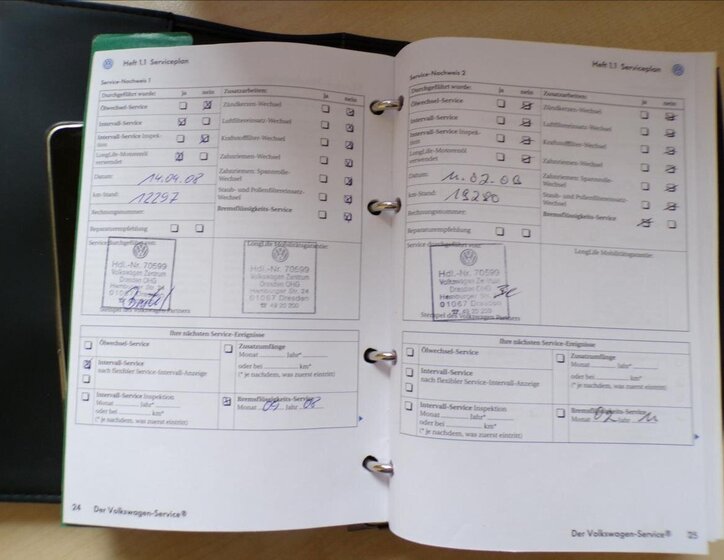 Heft 1.1 Serviceplan
Service-Nachweis 1
Durchgeführt wurde: ja nein
Ölwechsel-Service
Intervall-Service
Intervall-Service Inspek-
tion
LongLife-Motorenöl
verwendet
Datum: 14.04.08
km-Stand: 12297
Rechnungsnummer:
Reparaturempfehlung
Zusatzarbeiten: ja nein
Zündkerzen-Wechsel
Luftfiltereinsatz-Wechsel
Kraftstofffilter-Wechsel
Zahnriemen-Wechsel
Zahnriemen: Spannrolle-
Wechsel
Staub- und Pollenfiltereinsatz-
Wechsel
Bremsflüssigkeits-Service
Service durchgeführt von:
Hdl.-Nr. 70599
Volkswagen Zentrum
Dresden OHG
Hamburger Str. 24
01067 Dresden
Stempel des Volkswagen Partners
LongLife Mobilitätsgarantie:
Hdl.-Nr. 70599
Volkswagen Zentrum
Dresden OHG
Hamburger Str. 24
01067 Dresden
☎ 49 20 200
Ihre nächsten Service-Ereignisse
Ölwechsel-Service
Intervall-Service
nach flexibler Service-Intervall-Anzeige
Intervall-Service Inspektion
Monat Jahr*
oder bei km*
(* je nachdem, was zuerst eintritt)
Zusatzumfänge
Monat Jahr*
oder bei km*
(* je nachdem, was zuerst eintritt)
Bremsflüssigkeits-Service
Monat 09 Jahr 08
24 Der Volkswagen-Service®
Heft 1.1 Serviceplan
Service-Nachweis 2
Durchgeführt wurde: ja nein
Ölwechsel-Service
Intervall-Service
Intervall-Service Inspek-
tion
LongLife-Motorenöl
verwendet
Datum: 11.02.09
km-Stand: 19280
Rechnungsnummer:
Reparaturempfehlung
Zusatzarbeiten: ja nein
Zündkerzen-Wechsel
Luftfiltereinsatz-Wechsel
Kraftstofffilter-Wechsel
Zahnriemen-Wechsel
Zahnriemen: Spannrolle-
Wechsel
Staub- und Pollenfiltereinsatz-
Wechsel
Bremsflüssigkeits-Service
Service durchgeführt von:
Hdl.-Nr. 70599
Volkswagen Zentrum
Dresden OHG
Hamburger Str.
01067 Dresden
☎ 49 20 200
Stempel des Volkswagen Partners
LongLife Mobilitätsgarantie:
Ihre nächsten Service-Ereignisse
Ölwechsel-Service
Intervall-Service
nach flexibler Service-Intervall-Anzeige
Intervall-Service Inspektion
Monat Jahr*
oder bei km*
(* je nachdem, was zuerst eintritt)
Zusatzumfänge
Monat Jahr*
oder bei km*
(* je nachdem, was zuerst eintritt)
Bremsflüssigkeits-Service
Monat 02 Jahr 11
Der Volkswagen-Service® 25